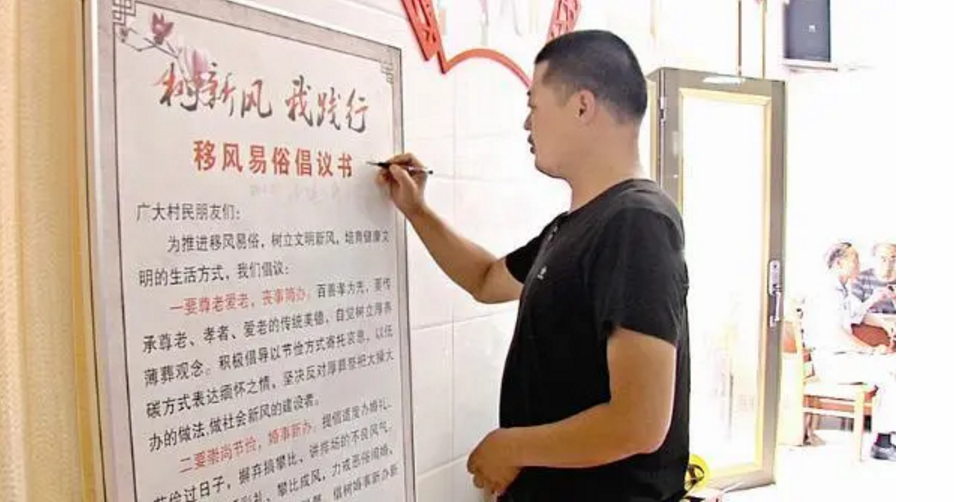 树新风 我践行
移风易俗倡议书
广大村民朋友们:
为推进移风易俗，树立文明新风，培育健康文
明的生活方式，我们倡议:
一要尊老爱老，丧事简办。百善孝为先，要传
承尊老、孝老、爱老的传统美德，自觉树立厚养
薄葬观念。积极倡导以节俭方式寄托哀思，以低
碳方式表达缅怀之情，坚决反对厚葬祭把大操大
办的做法,做社会新风的建设者。
二要崇尚节俭，婚事新办。提倡适度办婚礼，
节俭过日子，摒弃搞攀比、讲排场的不良风气。
彩礼、攀比成风，力戒恶俗闹婚、
倡树婚事新办新